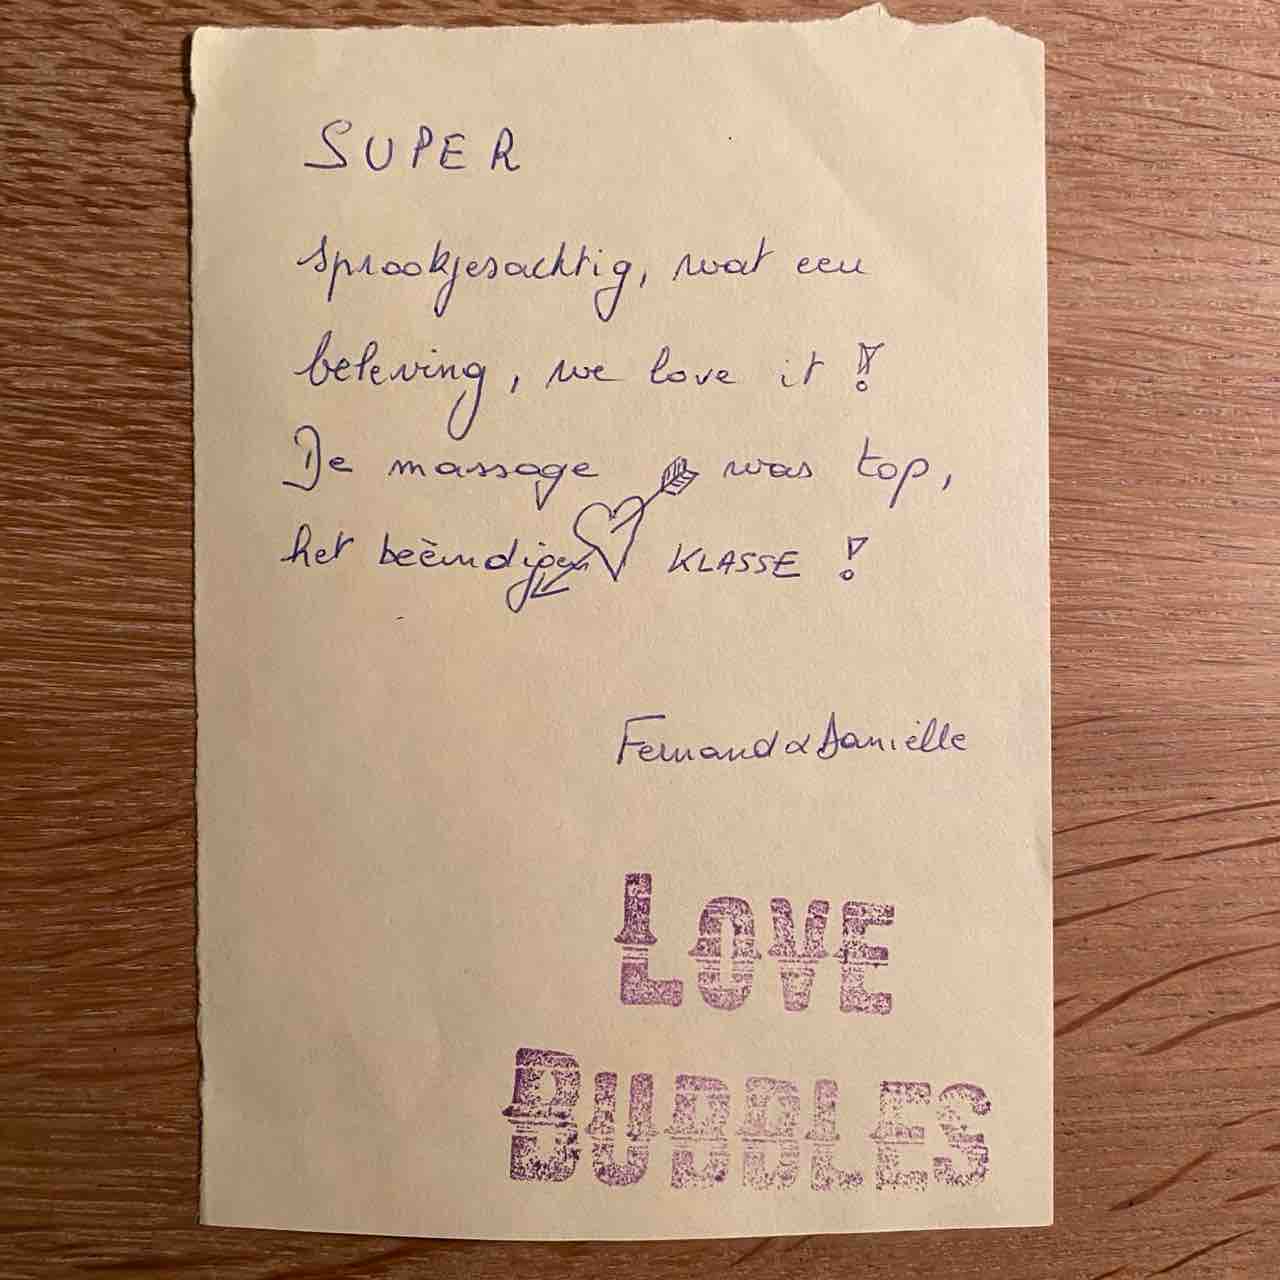 SUPER
sprookjesachtig, wat een
beleving, we love it !
De massage was top,
het beëindigen KLASSE !
Fernand & Daniëlle
LOVE
BUBBLES